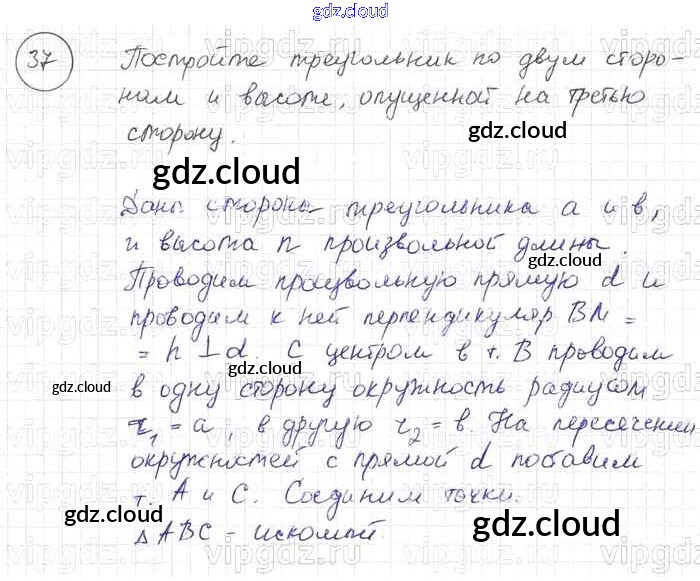 gdz.cloud
37 Постройте треугольник по двум сторо-
нам и высоте, опущенной на третью
сторону.
gdz.cloud
gdz.cloud
Даны стороны треугольника a и в,
и высота h произвольной длины.
gdz.cloud
Проводим произвольную прямую d и
проводим к ней перпендикуляр BN =
= h ⊥ d. С центром в т. B проводим
gdz.cloud
gdz.cloud
в одну сторону окружность радиусом
r₁ = a, в другую r₂ = в. На пересечении
окружностей с прямой d поставим
т. A и C. Соединим точки.
gdz.cloud
gdz.cloud
Δ ABC – искомый.